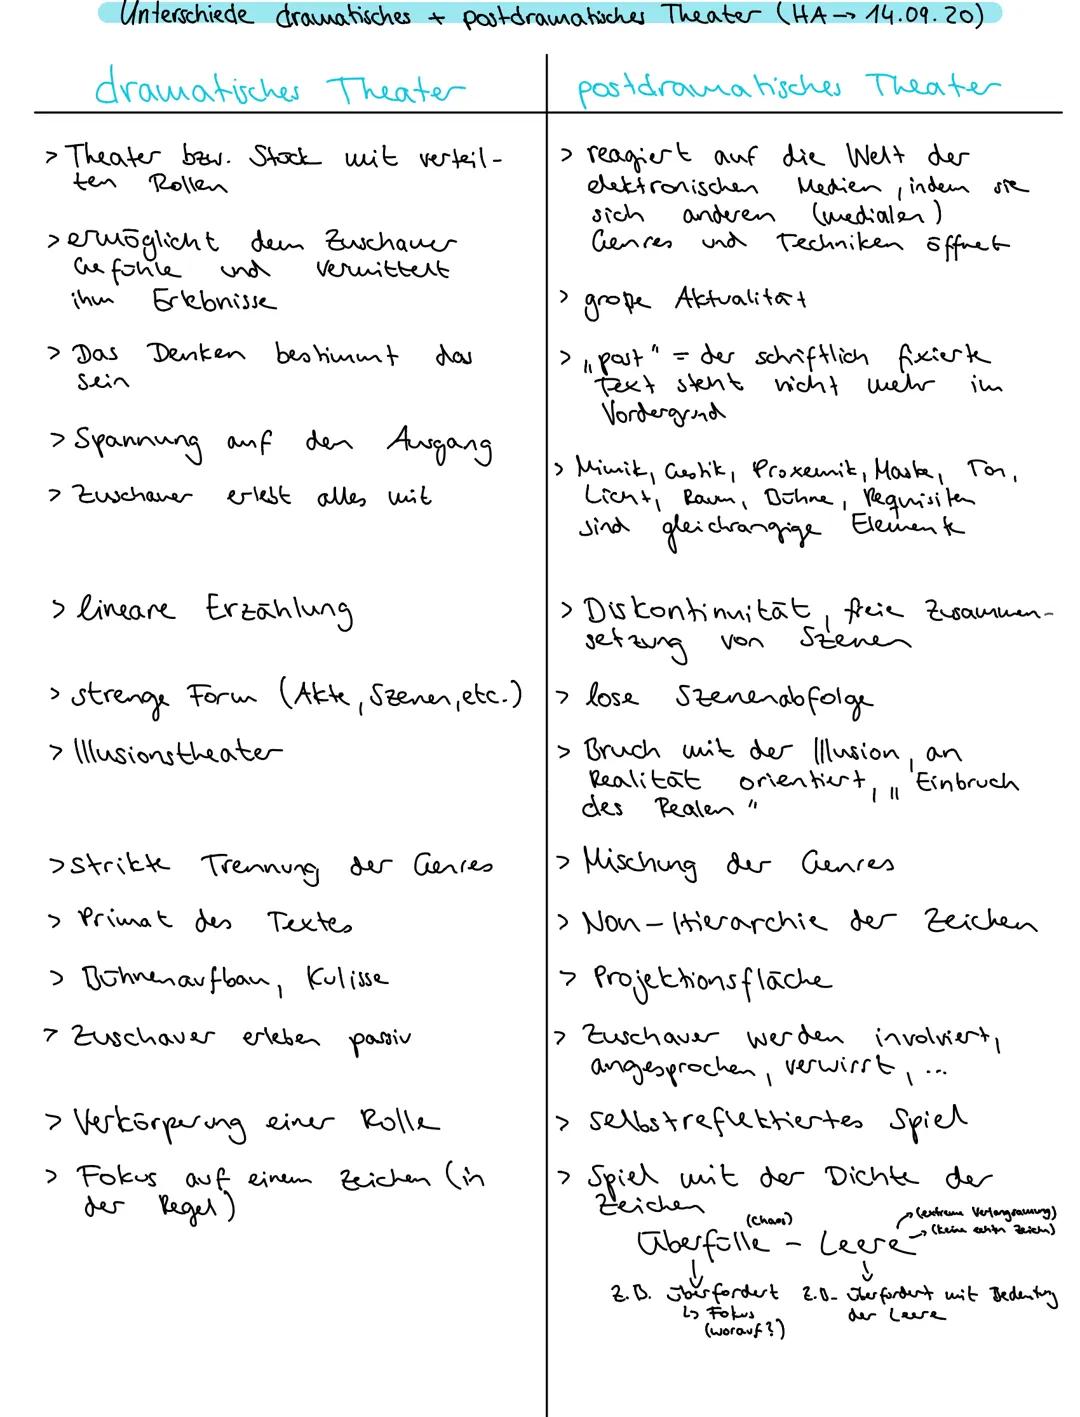 Unterschiede dramatisches + postdramatisches Theater (HA → 14.09.20)
dramatisches Theater
> Theater bzw. Stück mit verteil-
ten Rollen
> ermöglicht dem Zuschauer
Gefühle und vermittelt
ihm Erlebnisse
> Das Denken bestimmt das
Sein
> Spannung auf den Ausgang
> Zuschauer erlebt alles mit
> lineare Erzählung
> strenge Form (Akte, Szenen, etc.)
> Illusionstheater
> strikte Trennung der Genres
> Primat des Textes
> Bühnenaufbau, Kulisse
> Zuschauer erleben passiv
> Verkörperung einer Rolle
> Fokus auf einem Zeichen (in
der Regel)
postdramatisches Theater
> reagiert auf die Welt der
elektronischen Medien, indem sie
sich anderen (medialen)
Genres und Techniken öffnet
> große Aktualität
> „post" = der schriftlich fixierte
Text steht nicht mehr im
Vordergrund
> Mimik, Gestik, Proxemik, Maske, Ton,
Licht, Raum, Bühne, Requisiten
sind gleichrangige Elemente
> Diskontinuität, freie Zusammen-
setzung von Szenen
> lose Szenenabfolge
> Bruch mit der Illusion, an
Realität orientiert, „Einbruch
des Realen"
> Mischung der Genres
> Non-Hierarchie der Zeichen
> Projektionsfläche
> Zuschauer werden involviert,
angesprochen, verwirrt, ...
> selbstreflektiertes Spiel
> Spiel mit der Dichte der
Zeichen
(Chaos)
→ (extreme Verlangsamung)
→ (keine echten Zeichen)
Überfülle - Leere
z.B. überfordert
↳ Fokus
(worauf?)
z.B. überfordert mit Bedeutung
der Leere